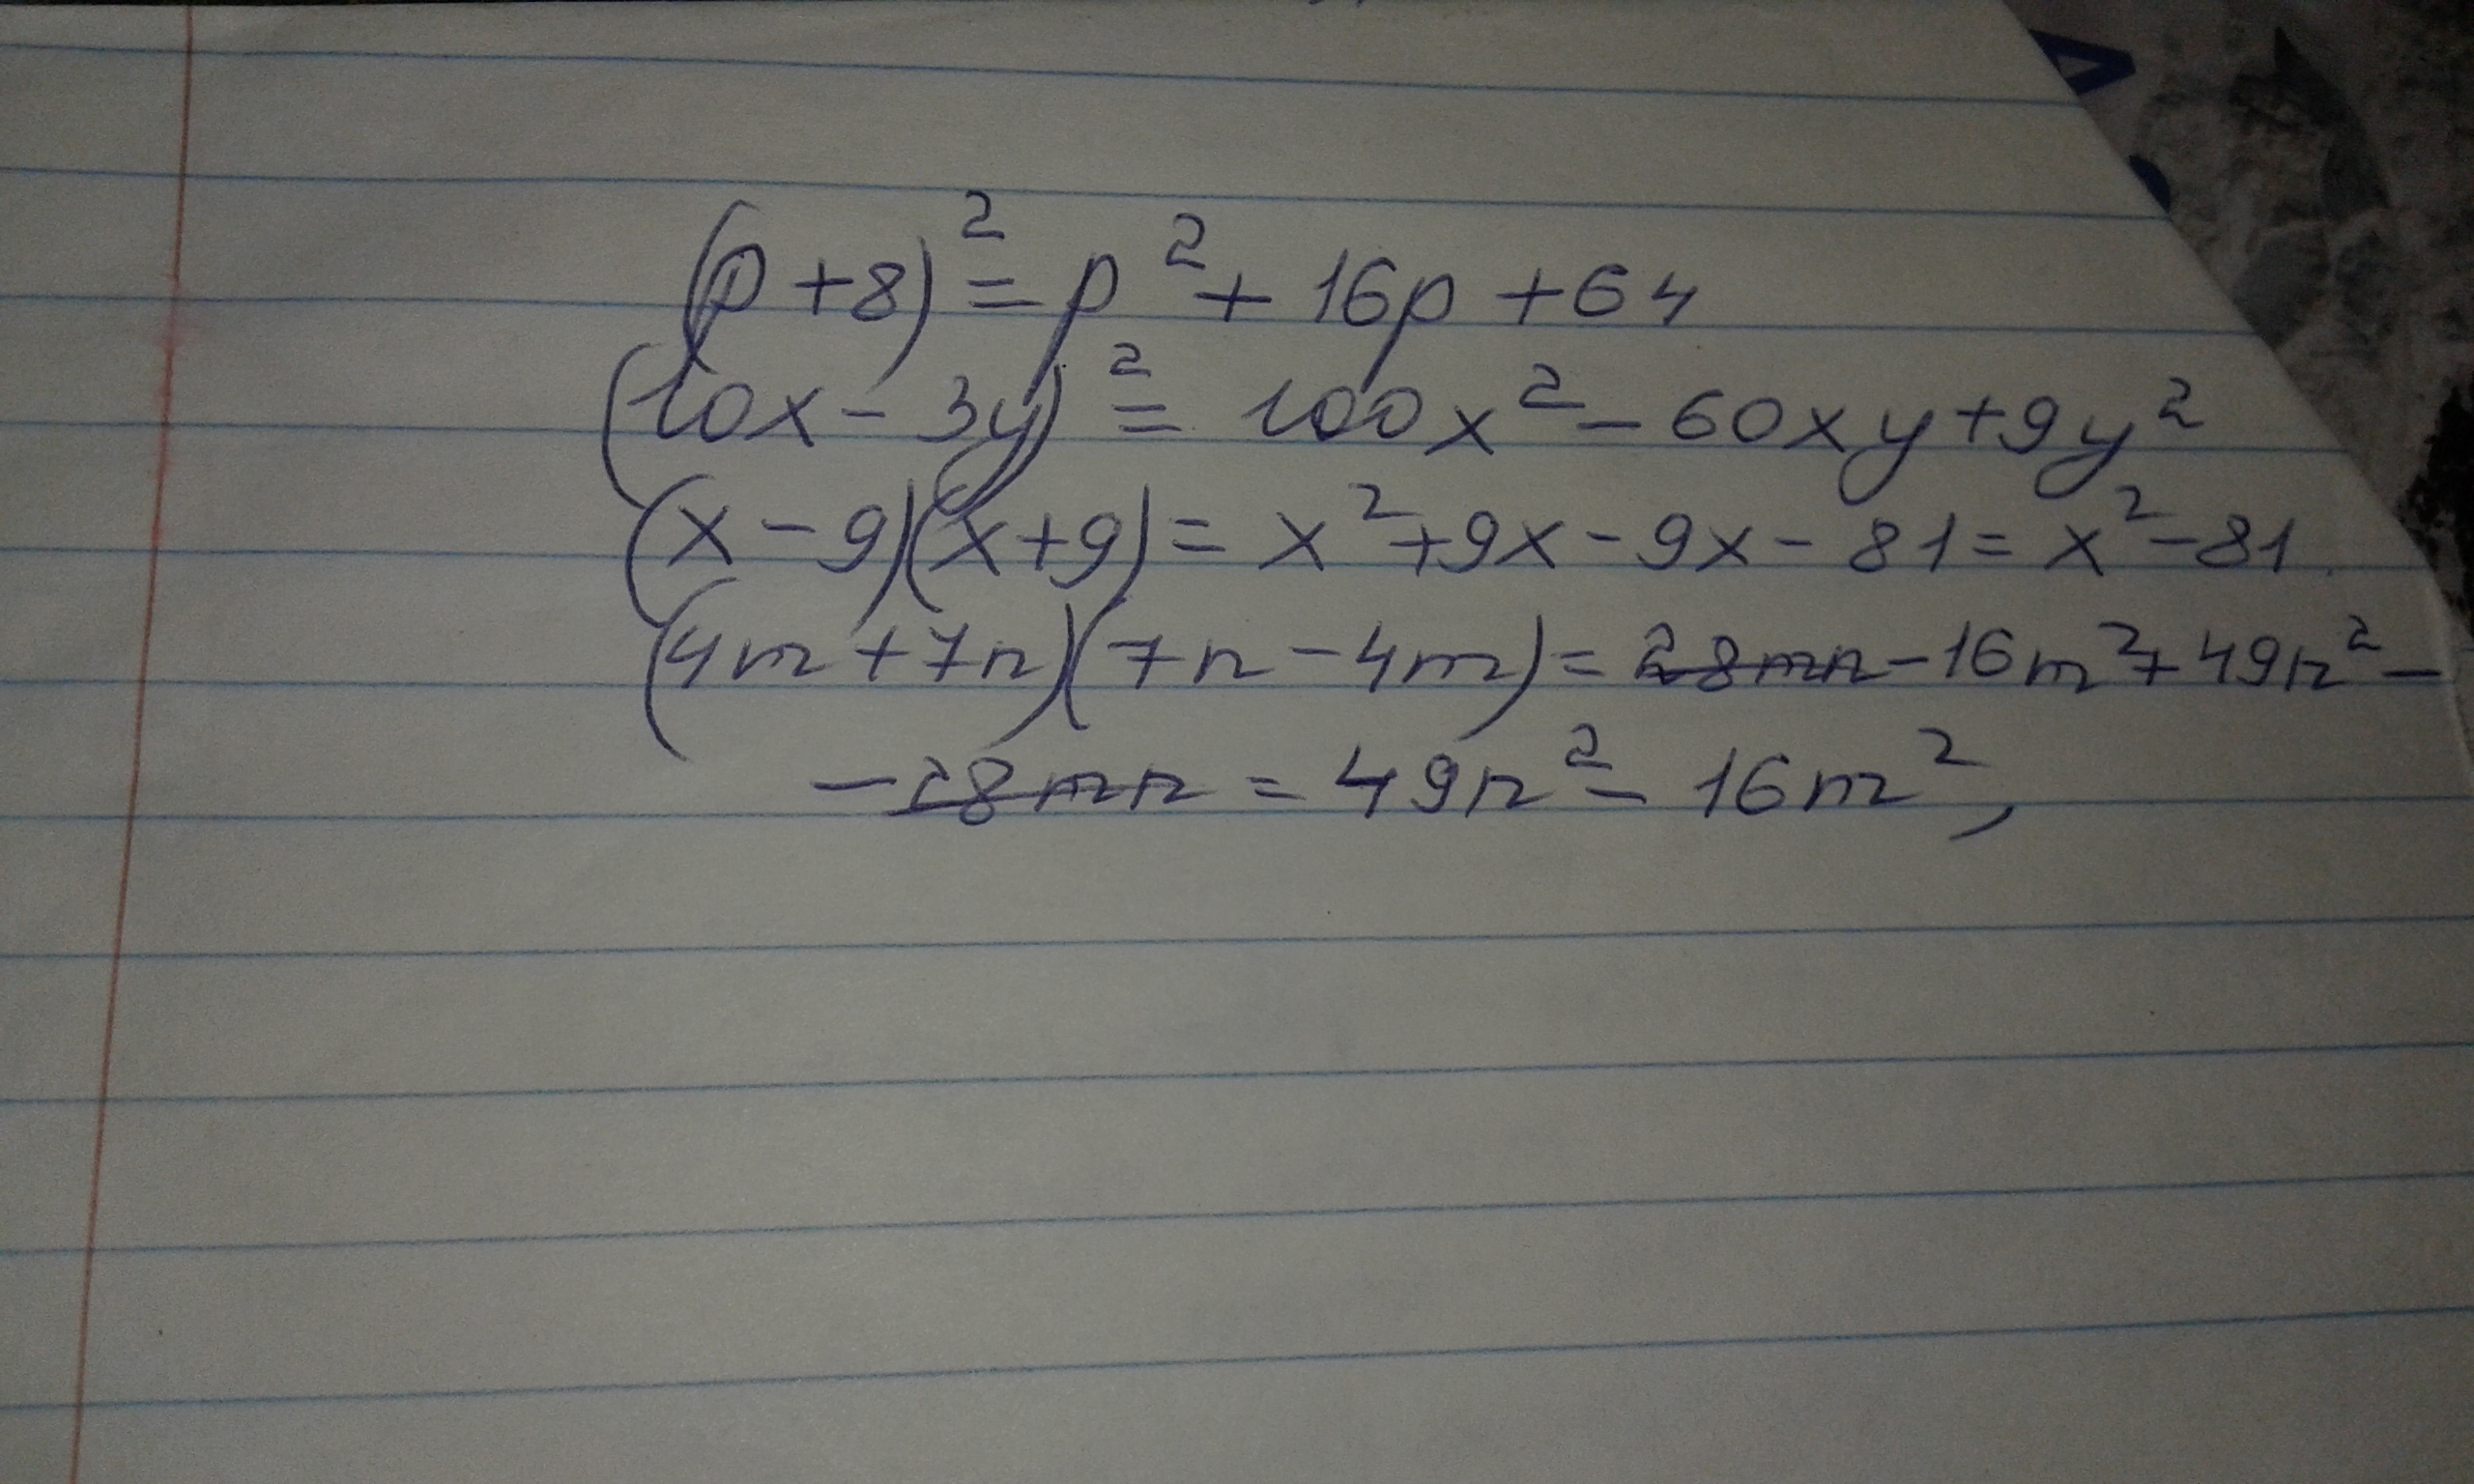 (p+8)²=p²+16p+64
(10x-3y)²=100x²-60xy+9y²
(x-9)(x+9)=x²+9x-9x-81=x²-81.
(4m+7n)(7n-4m)=28mn-16m²+49n²-
-28mn=49n²-16m²,